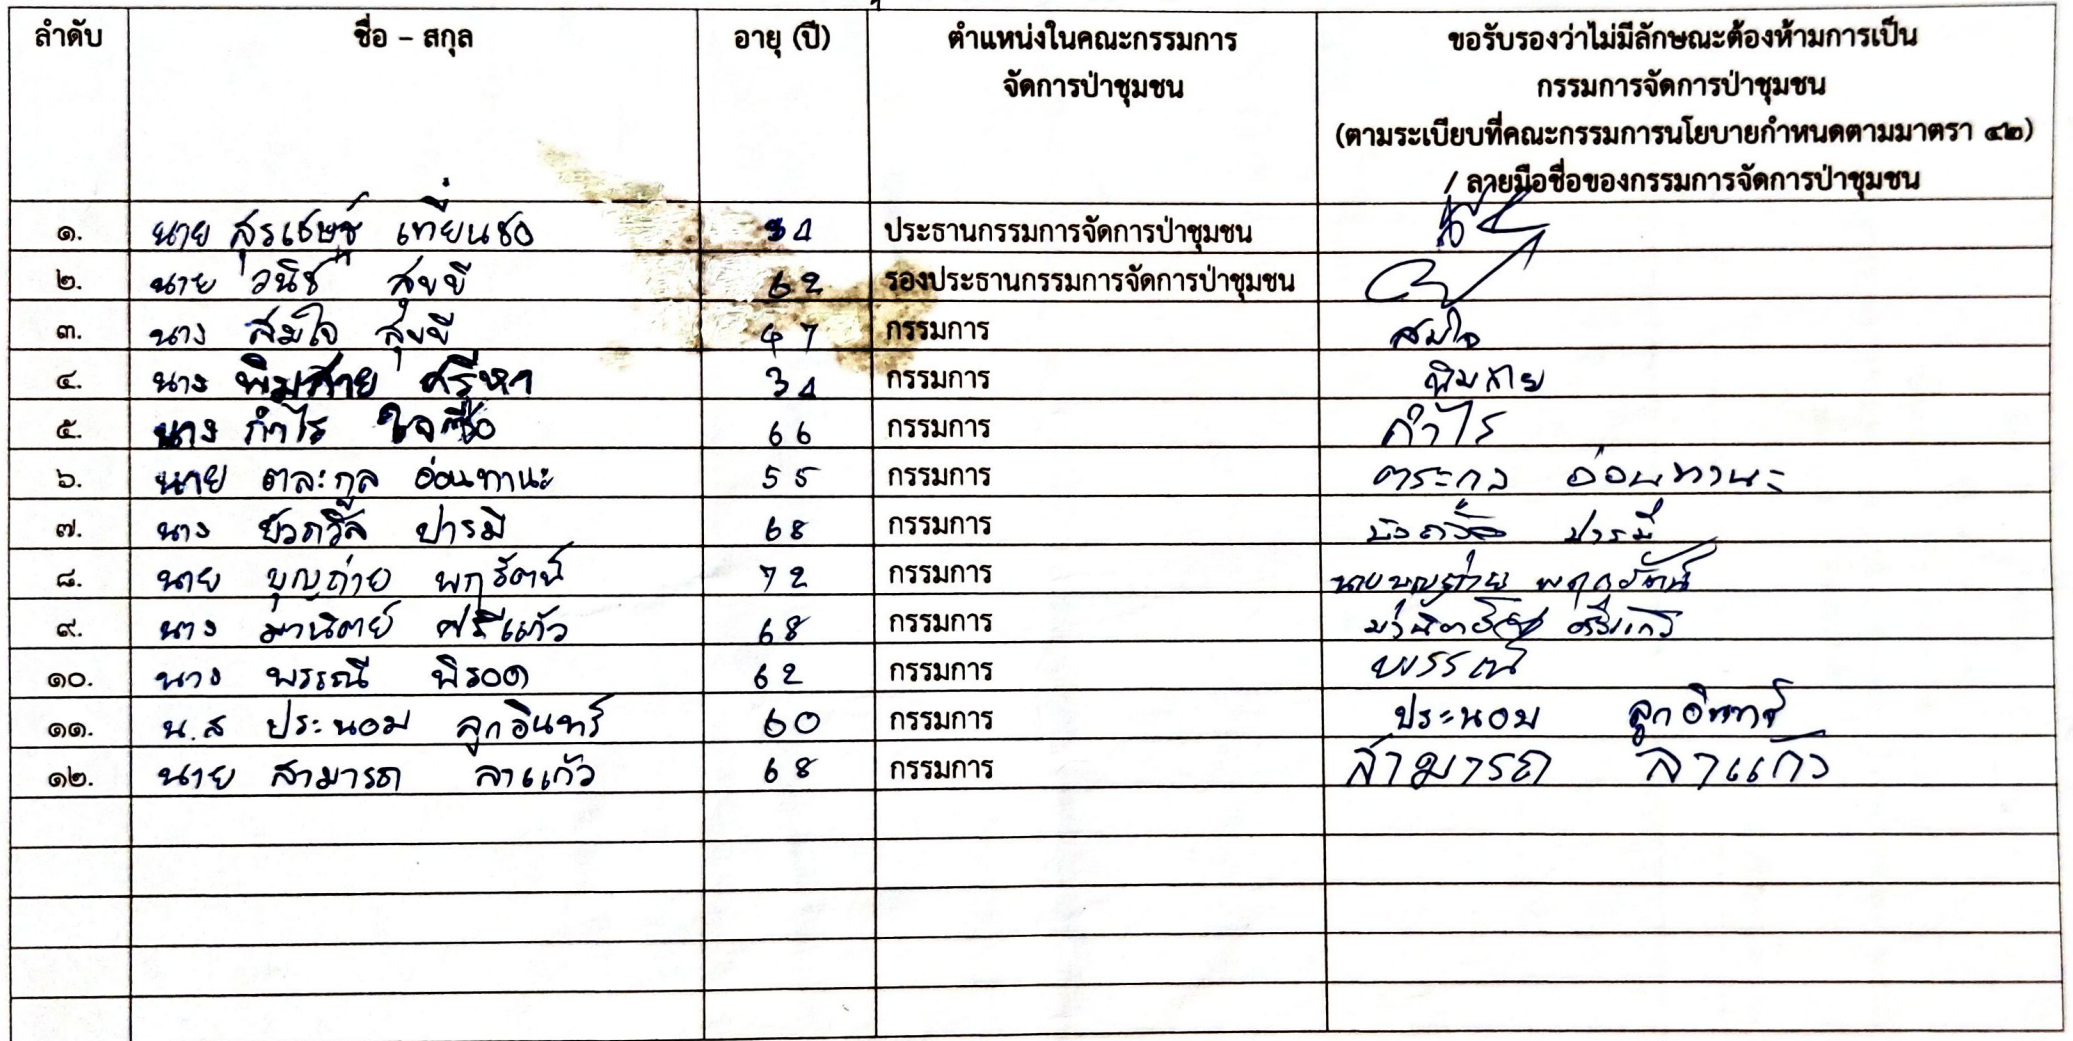 ลำดับ ชื่อ – สกุล อายุ (ปี) ตำแหน่งในคณะกรรมการ ขอรับรองว่าไม่มีลักษณะต้องห้ามการเป็น
จัดการป่าชุมชน กรรมการจัดการป่าชุมชน
(ตามระเบียบที่คณะกรรมการนโยบายกำหนดตามมาตรา ๔๒)
/ ลายมือชื่อของกรรมการจัดการป่าชุมชน
๑. นาย สุรเชษฐ์ เทียนชอ ประธานกรรมการจัดการป่าชุมชน
๒. นาย วนิช สุขขี 62 รองประธานกรรมการจัดการป่าชุมชน
๓. นาง สมใจ สุขขี 47 กรรมการ สมใจ
๔. นาง พิมสาย ศรีหา 34 กรรมการ พิมสาย
๕. นาง กำไร ใจซื่อ 66 กรรมการ กำไร
๖. นาย ตละกูล อ่อนทานะ 55 กรรมการ ตระกูล อ่อนทานะ
๗. นาง บัวถวิล ปารมี 68 กรรมการ บัวถวิล ปารมี
๘. นาย บุญถ่าย 72 กรรมการ นายบุญถ่าย
๙. นาง มานิตย์ ศรีแก้ว 68 กรรมการ ศรีแก้ว
๑๐. นาง พรรณี พิรอด 62 กรรมการ พรรณี
๑๑. น.ส ประนอม ลูกอินทร์ 60 กรรมการ ประนอม ลูกอินทร์
๑๒. นาย สามารถ ลาแก้ว 68 กรรมการ สามารถ ลาแก้ว